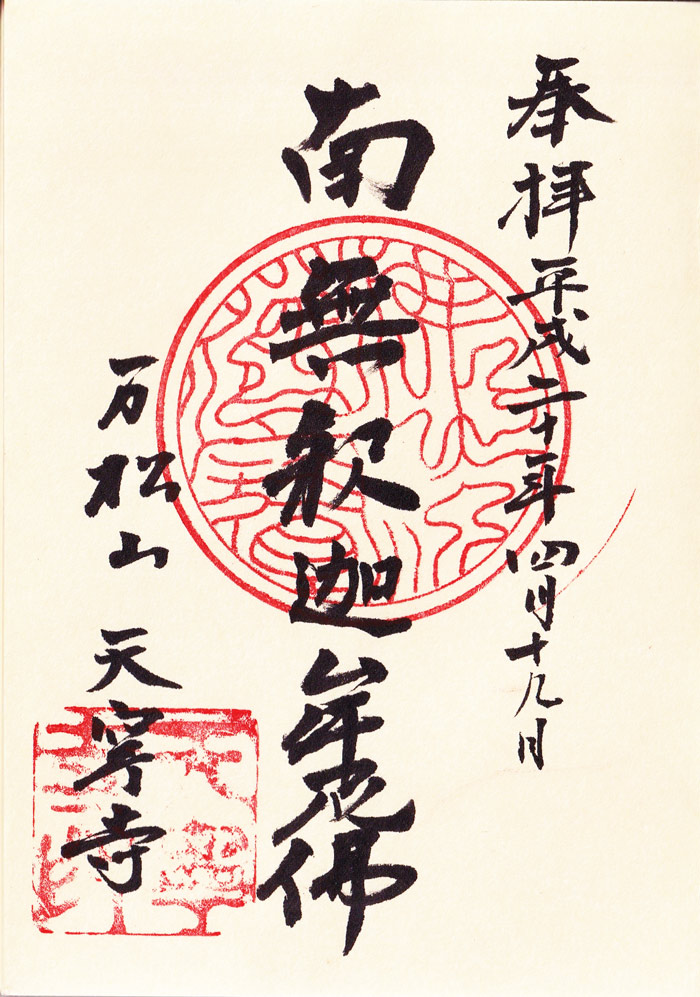 奉拝 平成二十年四月十九日
南無釈迦牟尼佛
万松山 天寧寺